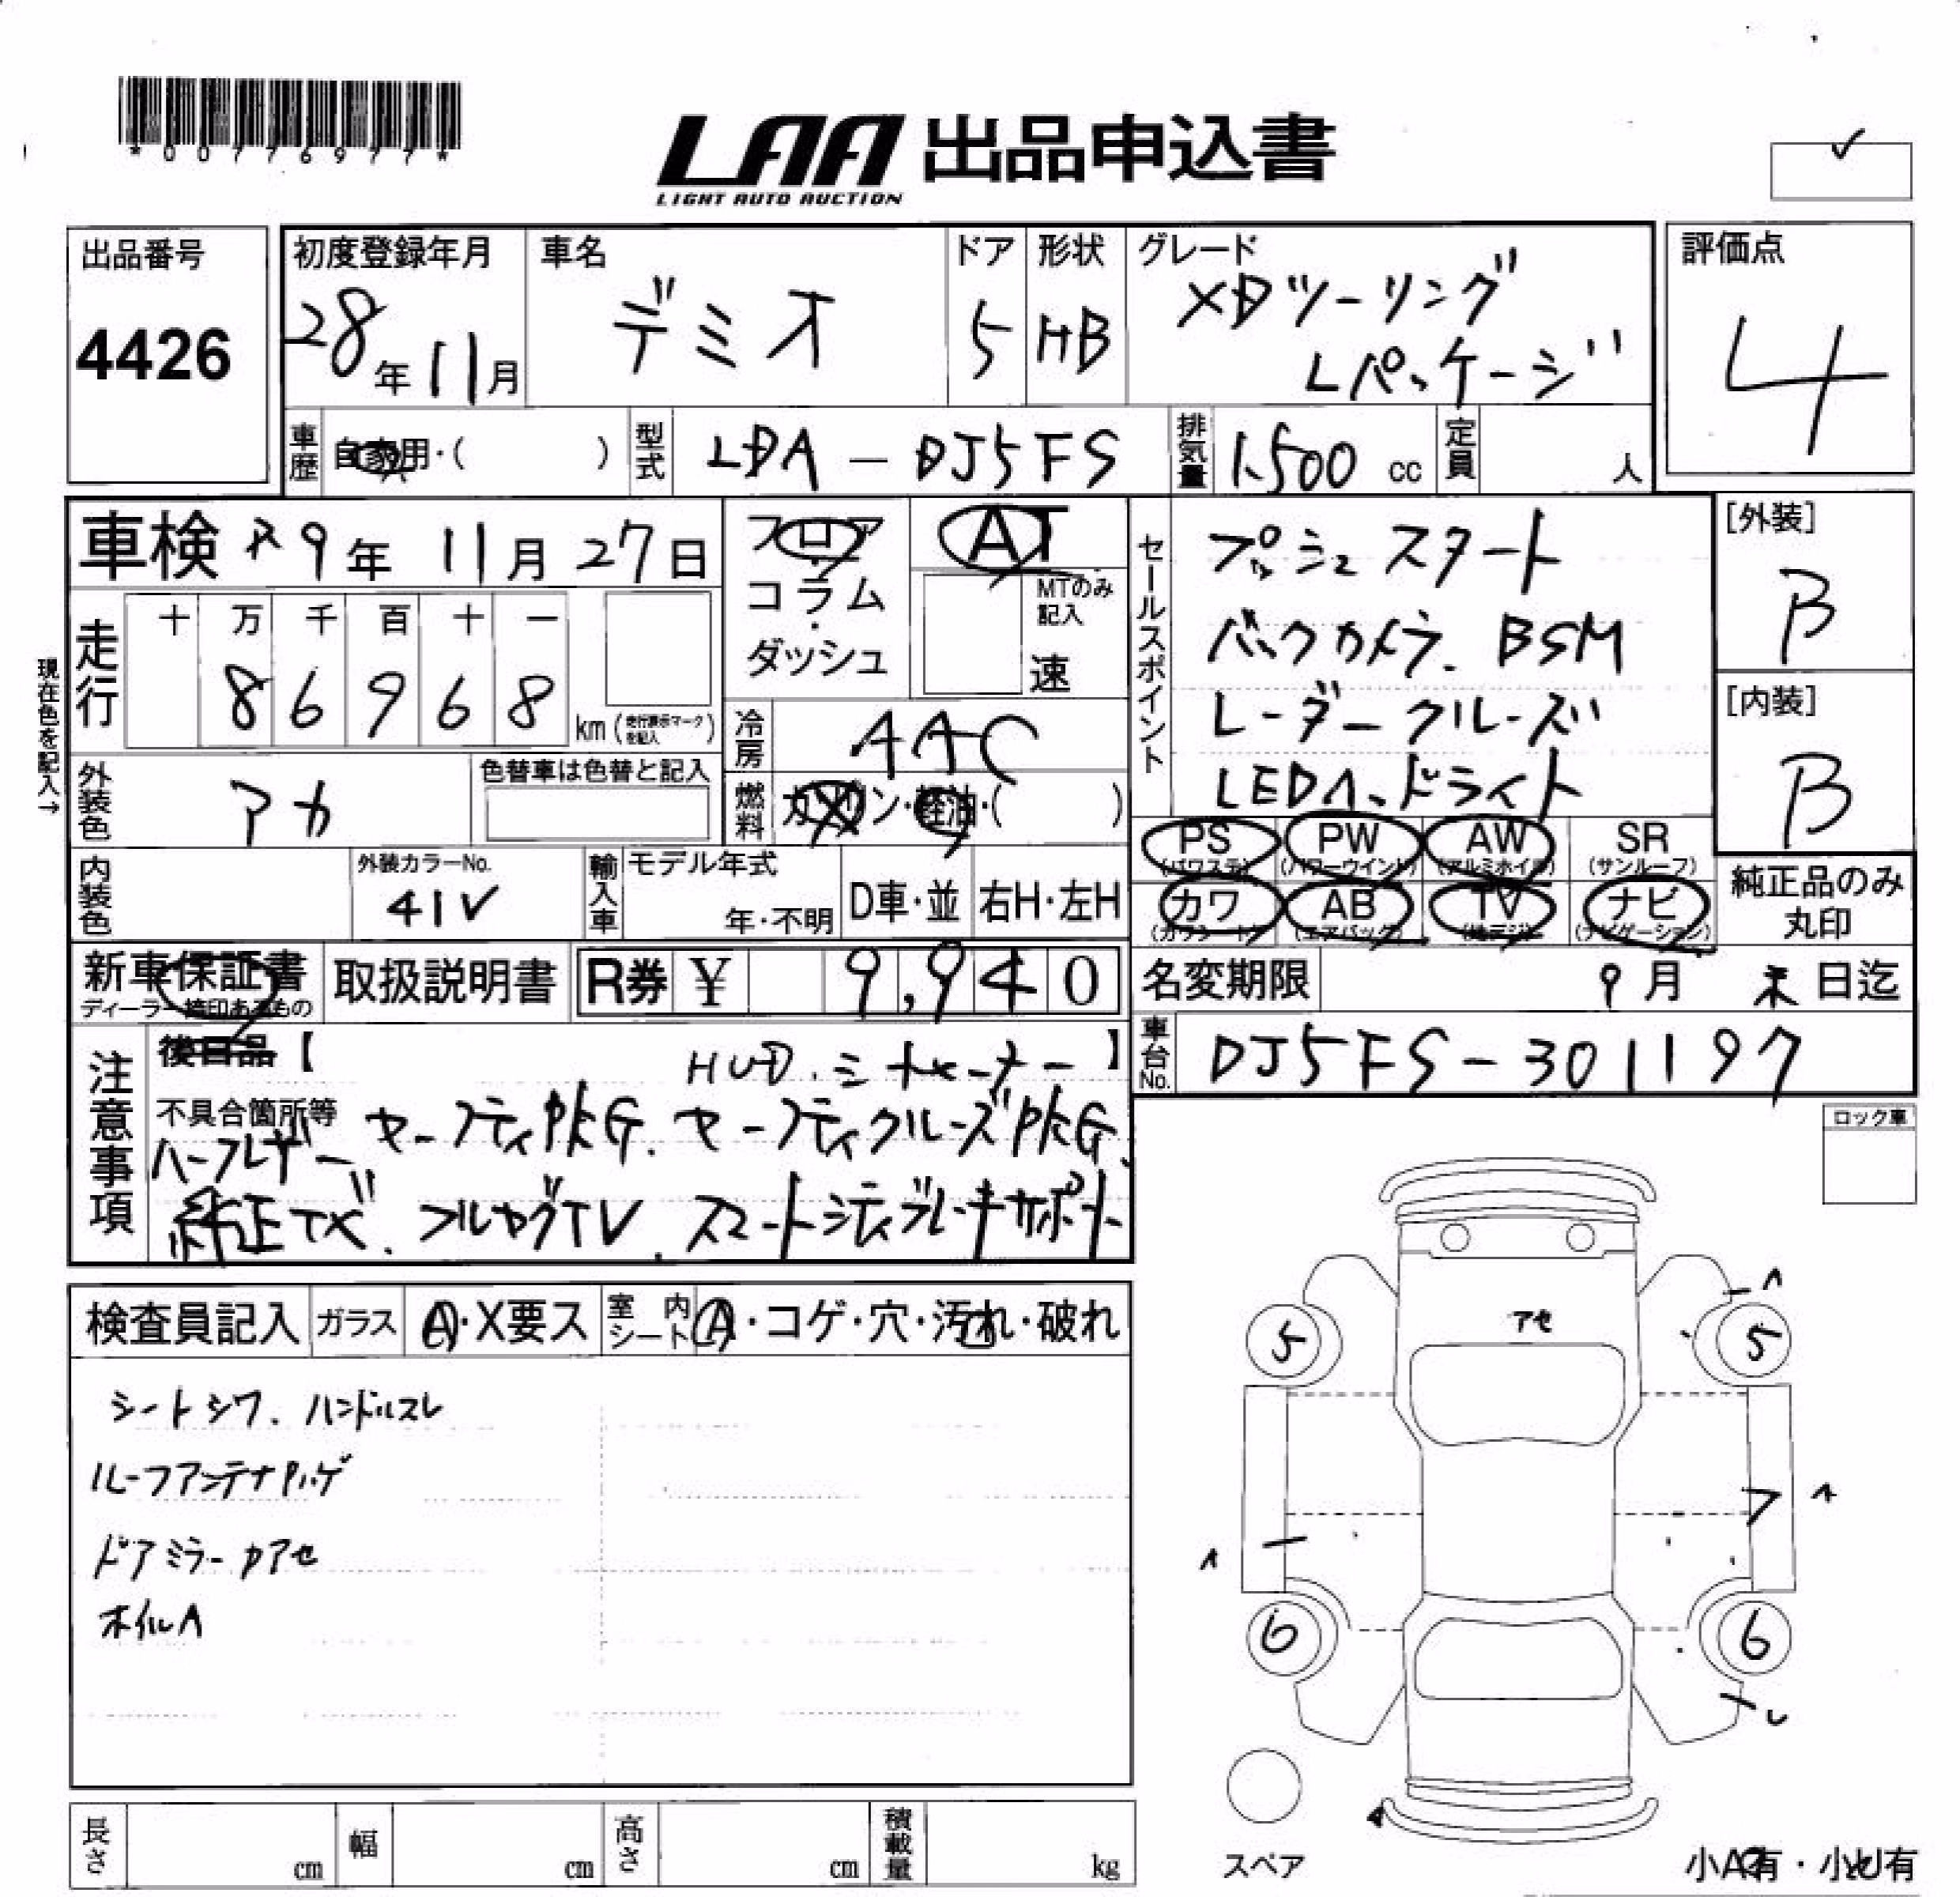 *00776977*
LAA 出品申込書
LIGHT AUTO AUCTION
出品番号
4426
初度登録年月
28年 11月
車名
デミオ
ドア
5
形状
HB
グレード
XDツーリング
Lパッケージ
評価点
4
車歴
自家用・( )
型式
LDA-DJ5FS
排気量
1.500 cc
定員
人
車検 R9年 11月 27日
フロア
・
コラム
・
ダッシュ
AT
MTのみ
記入
速
セールスポイント
プッシュスタート
バックカメラ. BSM
レーダークルーズ
LEDヘッドライト
[外装]
B
[内装]
B
現在色を記入→
走行
十 万 千 百 十 一
8 6 9 6 8
km(走行表示マークを記入)
冷房
AAC
外装色
アカ
色替車は色替と記入
燃料
ガソリン・軽油・( )
PS
(パワステ)
PW
(パワーウインド)
AW
(アルミホイル)
SR
(サンルーフ)
カワ
(カワシート)
AB
(エアバック)
TV
(地デジ)
ナビ
(ナビゲーション)
純正品のみ
丸印
内装色
外装カラーNo.
41V
輸入車
モデル年式
年・不明
D車・並
右H・左H
新車保証書
ディーラー捺印あるもの
取扱説明書
R券 ¥ 9,940
名変期限
9月 末日迄
車台No.
DJ5FS-301197
注意事項
後日品【 HUD. 】
不具合箇所等 セーフティPKG. セーフティクルーズPKG.
ハーフレザー
純正TV. フルセグTV. スマートシティブレーキサポート
ロック車
検査員記入
ガラス
A・X要ス
室内
シート
A・コゲ・穴・汚れ・破れ
シートシワ. ハンドルスレ
ルーフアンテナハゲ
ドアミラーカアセ
ホイルA
アセ
5
5
6
6
スペア
長さ
cm
幅
cm
高さ
cm
積載量
kg
小A有・小U有